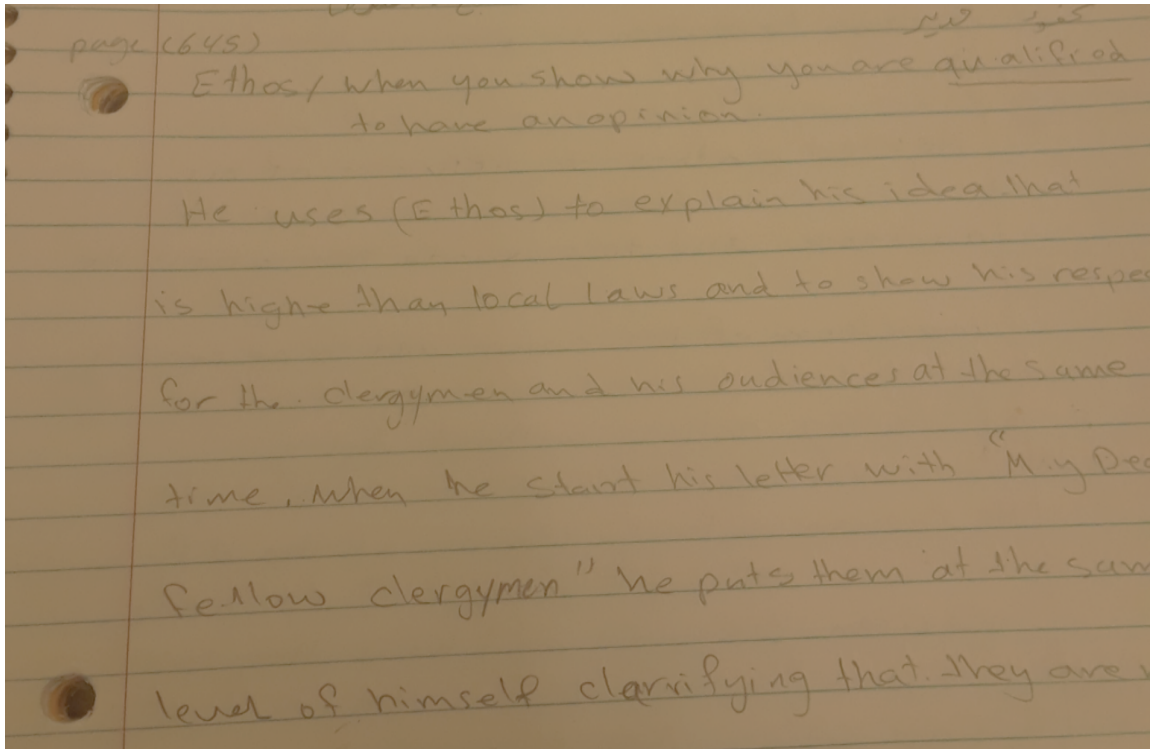 page (645)
Ethos / when you show why you are qualified
to have an opinion.
He uses (Ethos) to explain his idea that
is highe than local laws and to show his respe
for the clergymen and his audiences at the same
time, when he start his letter with "My Dea
fellow clergymen" he puts them at the sam
level of himself clarrifying that they are